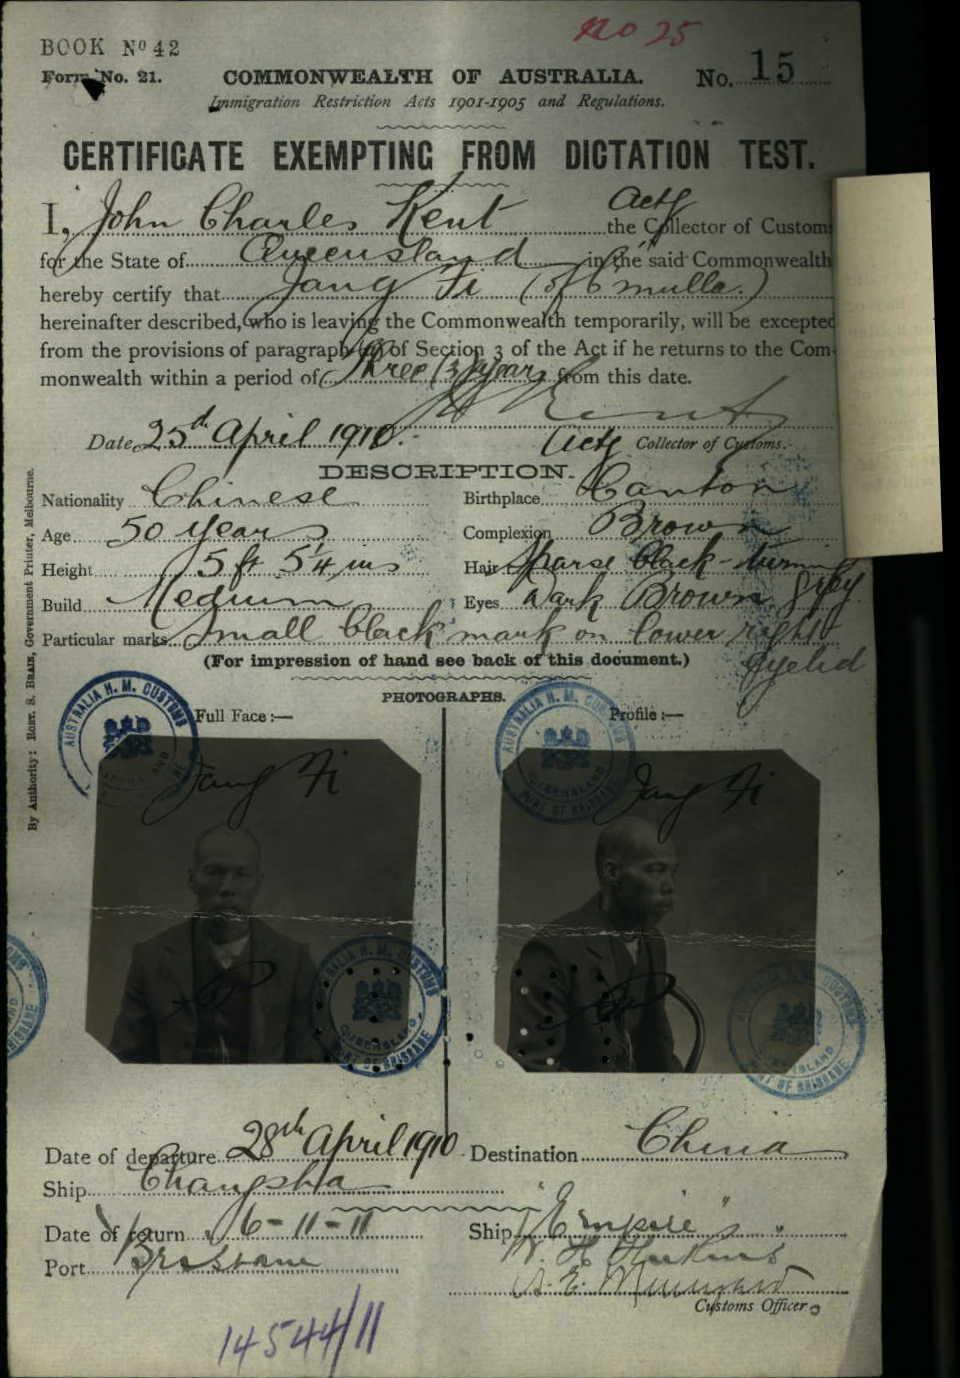 BOOK No 42
No 25
Form No. 21.
COMMONWEALTH OF AUSTRALIA.
No. 15
Immigration Restriction Acts 1901-1905 and Regulations.
CERTIFICATE EXEMPTING FROM DICTATION TEST.
I, John Charles Kent Actg the Collector of Customs
for the State of Queensland in the said Commonwealth
hereby certify that Jang Fi (of C'mulla.)
hereinafter described, who is leaving the Commonwealth temporarily, will be excepted
from the provisions of paragraph (a) of Section 3 of the Act if he returns to the Com-
monwealth within a period of Three (3) years from this date.
J C Kent
Date 25th April 1910. Actg Collector of Customs.
DESCRIPTION.
Nationality Chinese
Birthplace Canton
Age 50 years
Complexion Brown
Height 5 ft 5¼ ins
Hair Sparse black-turning grey
Build Medium
Eyes Dark Brown
Particular marks Small black mark on lower right eyelid
(For impression of hand see back of this document.)
PHOTOGRAPHS.
Full Face :—
Profile :—
AUSTRALIA H. M. CUSTOMS
AUSTRALIA H. M. CUSTOMS QUEENSLAND PORT OF BRISBANE
Jang Fi
Jang Fi
AUSTRALIA H. M. CUSTOMS QUEENSLAND PORT OF BRISBANE
QUEENSLAND PORT OF BRISBANE
BRISBANE
Date of departure 28th April 1910
Destination China
Ship Changsha
Date of return 6-11-11
Ship "Empire"
Port Brisbane
Customs Officer
14544/11
By Authority: ROBT. S. BRAIN, Government Printer, Melbourne.